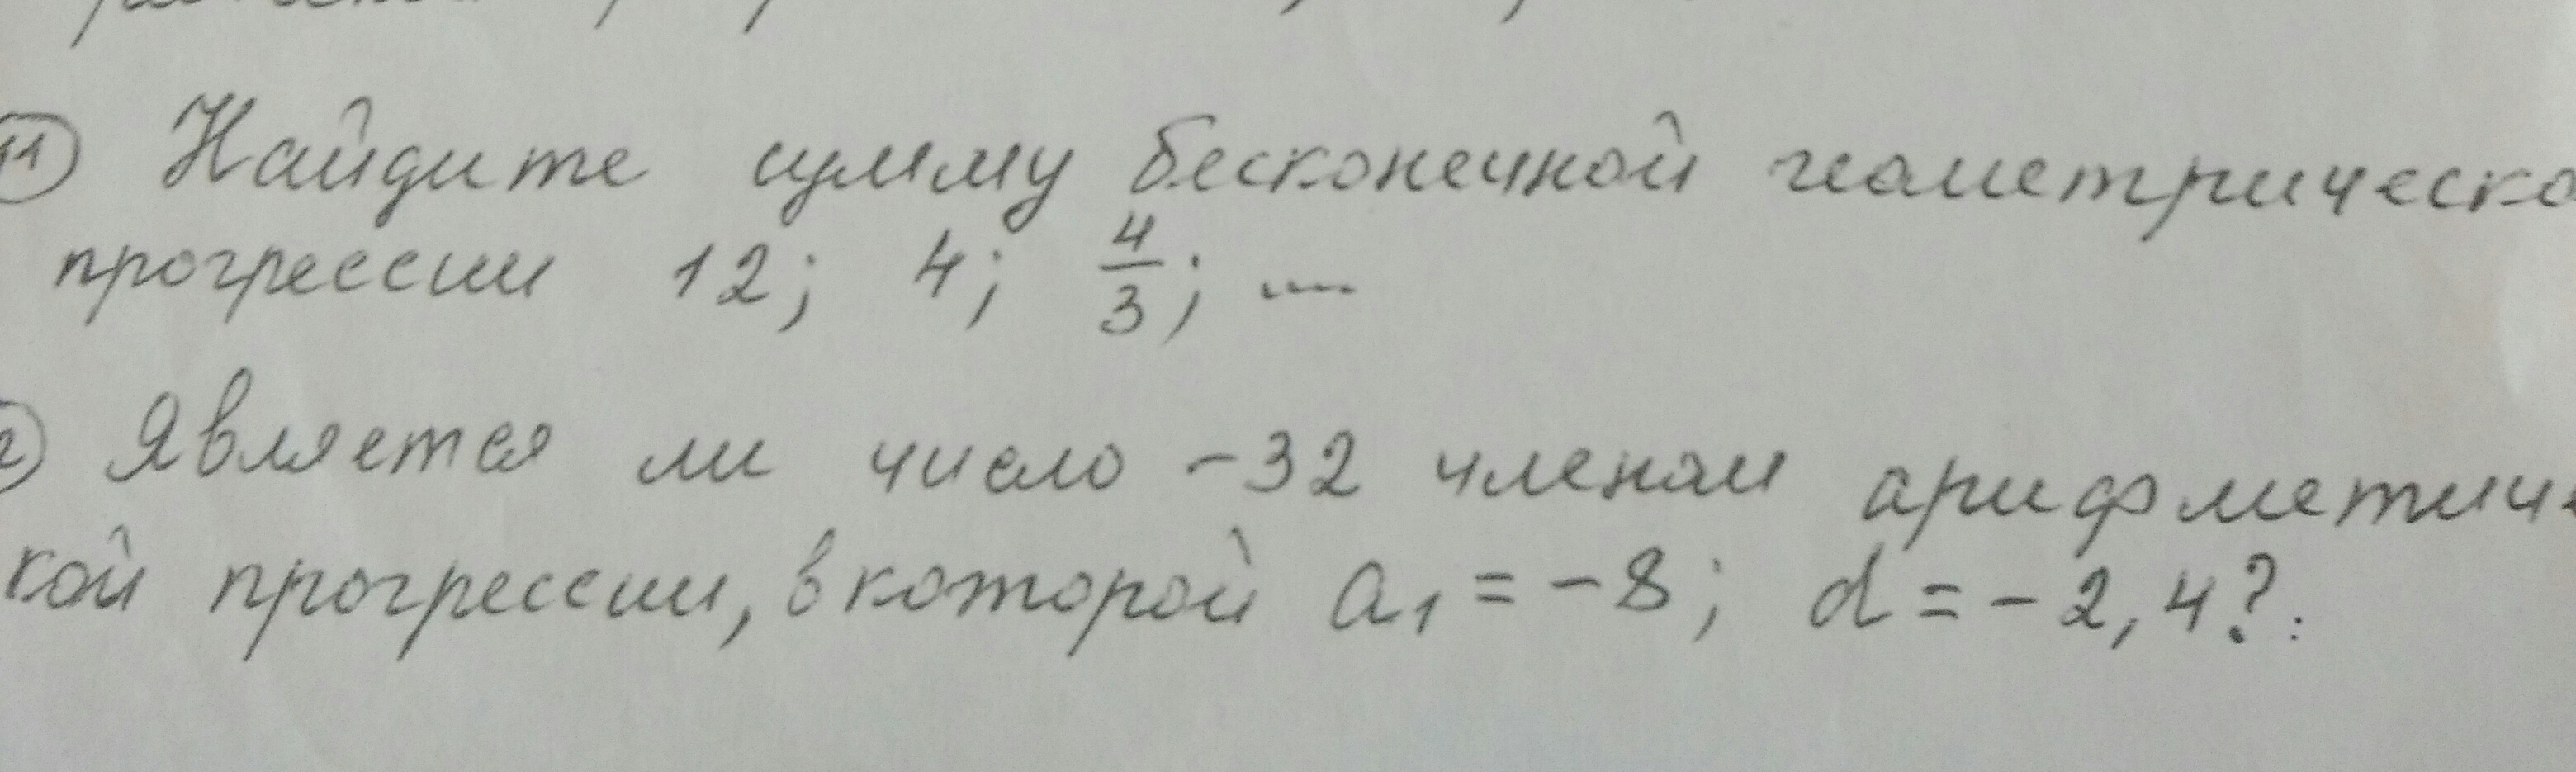 11 Найдите сумму бесконечной геометрическо
прогрессии 12; 4; 4/3; ....
2 Является ли число -32 членом арифметич
кой прогрессии, в которой a₁ = -8; d = -2,4?.